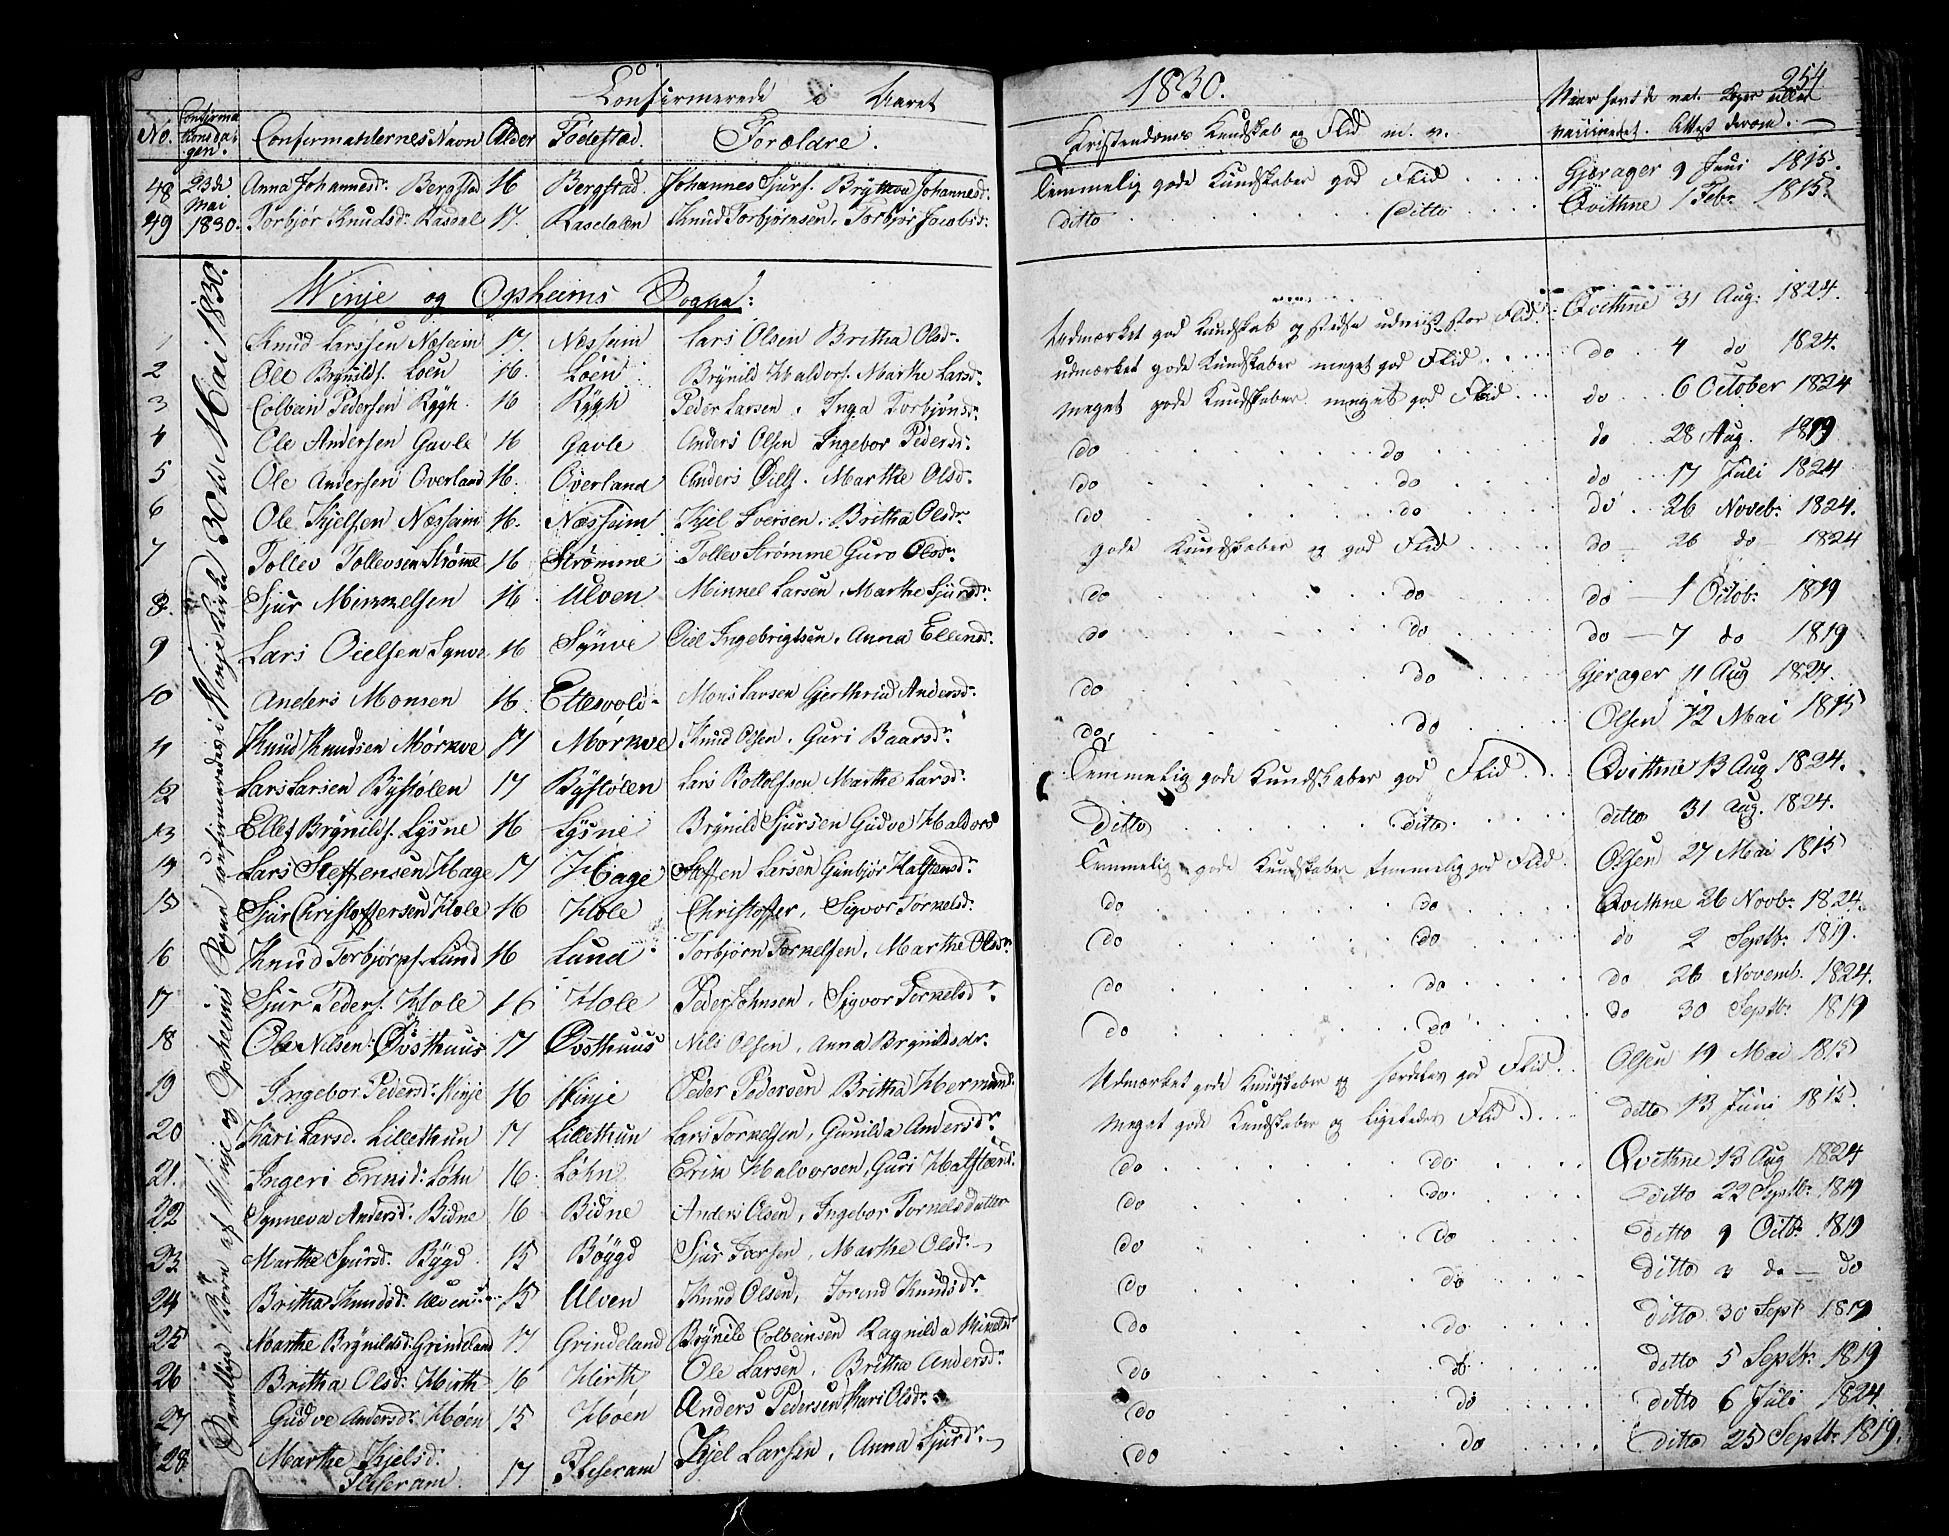 Confirmerede i Aaret 1830. 254
No. Confirmationsdagen. Confirmandernes Navn Alder Fødestad. Forældre. Kristendoms Kundskab og Flid m. v. Naar havt de nat. Koper eller vaccineret. Attest derom.
48 23de Mai Anna Johannesdr. Bergstad 16 Bergstad. Johannes Sjurs. Brytteva Johannesdr. Temmelig gode Kundskaber god Flid Gjerager 9 Juni 1815.
49 1830. Torbjør Knudsdr. Rasdal 17. Rasdalen Knud Torbjørnsen, Torbjør Jacobsdr. ditto ditto Qvithne 1 Febr. 1815.
Samtlige Børn af Winje og Opheims Sogne confirmerede i Winje Kirke 30te Mai 1830.
Winje og Opheims Sogne:
1 Knud Larssen Næseim 17. Næsheim Lars Olsen Britha Olsdr. Udmærket god Kundskab og stedse udviist stor Flid. Qvithne 31 Aug. 1824.
2 Ole Brynilds. Løen 16. Løen Brynild Haldors. Marthe Larsdr. udmærket gode Kundskaber meget god Flid do 4 do 1824.
3 Colbein Pedersen Rygh. 16 Rygh Peder Larsen, Inga Torbjønsdr. meget gode Kundskaber meget god Flid do 6 October 1824
4 Ole Andersen Gavle 16 Gavle Anders Olsen Ingebor Pedersdr. do do do 28 Aug. 1819
5 Ole Andersen Overland 16. Overland Anders Oiels. Marthe Olsdr. do do do 17 Juli 1824
6 Ole Kjelsen Næsheim 16. Næsheim Kjel Iversen, Britha Olsdr. do do do 26 Novebr. 1824.
7 Tollev Tollevsen Strømme 16 Strømme Tollev Strømme Guro Olsdr. gode Kundskaber og god Flid do 26 do 1824
8. Sjur Mikkelsen 16. Ulven Mikkel Larsen, Marthe Sjursdr. do do do 1 Octob. 1819
9 Lars Oielsen Synve 16 Synve Oiel Ingebrigtsen, Anna Ellensdr. do do do 7 do 1819
10 Anders Monsen 16 Ettesvold Mons Larsen Gjerthrud Andersdr. do do Gjerager 11 Aug 1824.
11 Knud Knudsen Mørkve 17 Mørkve Knud Olsen, Guri Baarsdr. do, do Olsen 12 Mai 1815
12 Lars Larsen Bystølen 17 Bystølen Lars Bottolfsen Marthe Larsdr. Temmelig gode Kundskaber god Flid. Qvithne 13 Aug 1824.
13 Ellef Brynilds. Lysne 16 Lysne Brynild Sjursen Gudve Haldors ditto ditto ditto 31 Aug. 1824.
14 Lars Steffensen Hage 17 Hage Steffen Larsen Gunbjør Halstensdr. Temmelig gode Kundskaber temmelig god Flid. Olsen 27 Mai 1815
15 Sjur Christoffersen Hole 16 Hole Christoffer, Sigvor Torkelsdr. do do Qvithne 26 Novbr. 1824.
16 Knud Torbjørns. Lund 16 Lund Torbjørn Torkelsen, Marthe Olsdr. do do do 2 Septbr. 1819.
17 Sjur Peders. Hole 16 Hole Peder Johnsen, Sigvor Torkelsdr. do do do 26 Novemb. 1824.
18 Ole Nilsen Øvsthuus 17 Øvsthuus Nils Olsen, Anna Brynildsdr. do do do 30 Septbr. 1819
19 Ingebor Pedersdr. Winje 16 Winje Peder Pedersen Britha Hermundsdr. Udmærket gode Kundskaber og særdeles god Flid. Olsen 19 Mai 1815
20 Kari Larsd. Lillethun 17 Lillethun Lars Torkelsen, Gunilda Andersdr. meget gode Kundskaber og ligeledes Flid. ditto 13 Juni 1815.
21. Ingeri Eriksd. Løhn 16. Løhn Erik Halvorsen, Guri Halstensd. do do Qvithne 13 Aug 1824
22 Synneva Andersd. Bidne 16 Bidne Anders Olsen, Ingebor Torkelsdatter do do ditto 22 Septbr. 1819
23 Marthe Sjursd. Bygd 15 Bøygd Sjur Iversen, Marthe Olsdr. do do ditto 9 Octbr. 1819
24 Britha Knudsdr. Ulven 15 Ulven Knud Olsen, Jorend Knudsdr. do do ditto 3 do do
25 Marthe Brynildsd. Grindeland 17 Grindeland Brynild Colbeinsen Ragnilda Mikelsdr. do do ditto 30 Sept 1819
26 Britha Olsdr. Hirth 16 Hirth Ole Larsen, Britha Andersdr. do do ditto 5 Septbr. 1819
27 Gudve Andersdr. Høen 15 Høen Anders Pedersen Kari Olsdr. do do ditto 6 Juli 1824.
28 Marthe Kjelsd. Flseram 17 Kjel Larsen, Anna Sjursdr. do do ditto 25 Septbr. 1819.